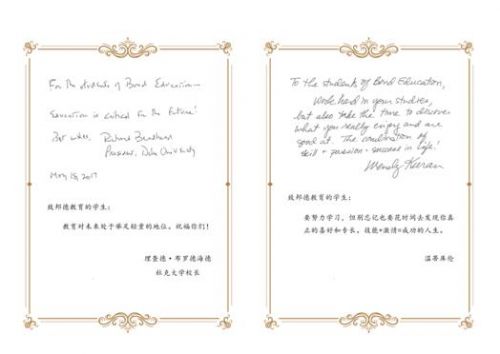 For the students of Bond Education —
Education is critical for the future!
Best wishes, Richard Brodhead
President, Duke University
May 15, 2017
致邦德教育的学生：
教育对未来处于举足轻重的地位，祝福你们！
理查德·布罗德海德
杜克大学校长
To the students of Bond Education,
Work hard in your studies,
but also take the time to discover
what you really enjoy and are
good at. The combination of
skill + passion = success in life!
Wendy Kuran
致邦德教育的学生：
要努力学习，但别忘记也要花时间去发现你真
正的喜好和专长。技能+激情=成功的人生。
温蒂库伦